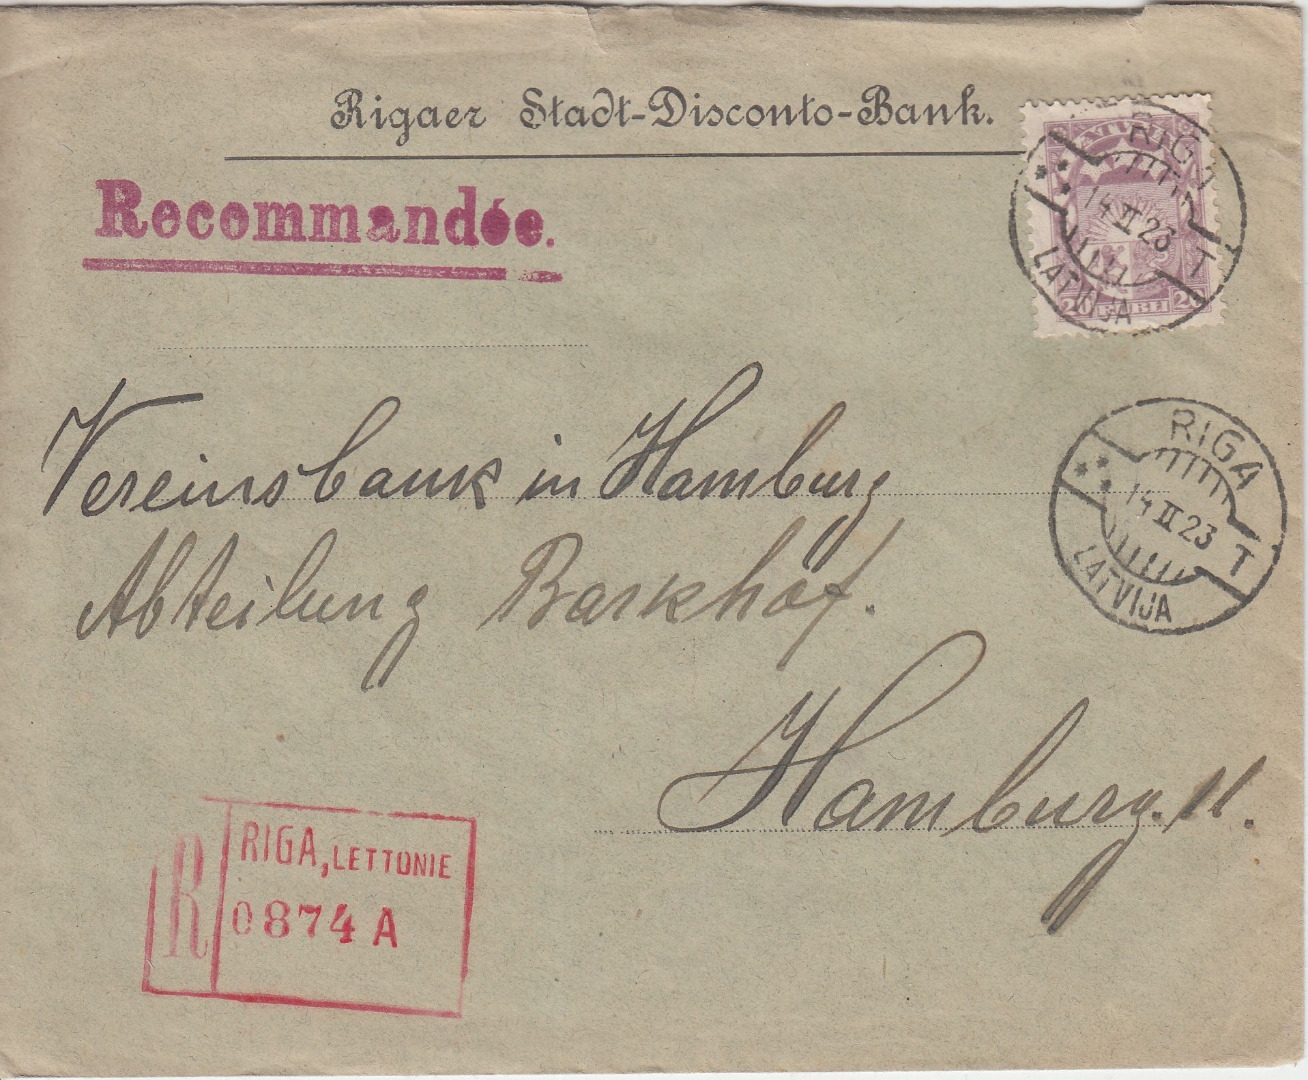 Rigaer Stadt-Disconto-Bank.
Recommandée.
LATVIJA
20 RUBLI 20
RIGA
14 II 23
T
LATVIJA
Vereinsbank in Hamburg
Abteilung Barkhof.
Hamburg. 11.
RIGA
14 II 23
T
LATVIJA
R
RIGA, LETTONIE
0874 A